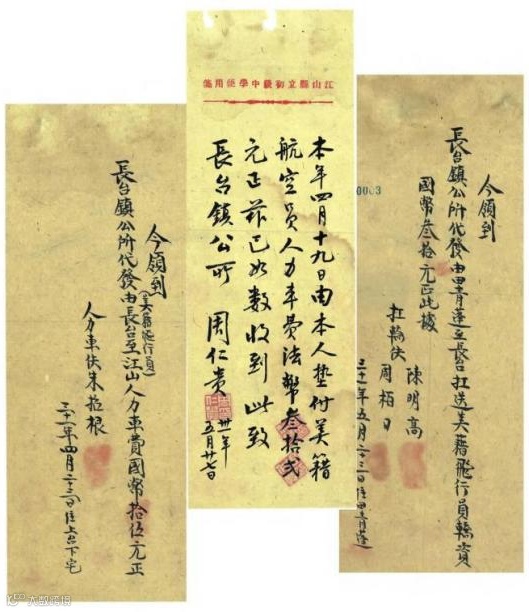 今領到
長台鎮公所代發由青蓬至長台扛送美籍飛行員轎資
國幣叁拾元正此據
扛轎伕 陳明高
周栢日
三十一年五月二十三日住青蓬
0003
江山縣立初級中學便用箋
本年四月十九日由本人墊付美籍
航空員人力車費法幣叁拾弍
元正茲已如數收到此致
長台鎮公所 周仁貴
卅年
五月廿七日
今領到
(美籍飛行員)
長台鎮公所代發由長台至江山人力車費國幣拾伍元正
人力車伕朱拉根
三十一年四月二十三日住上台下宅
大数跨境